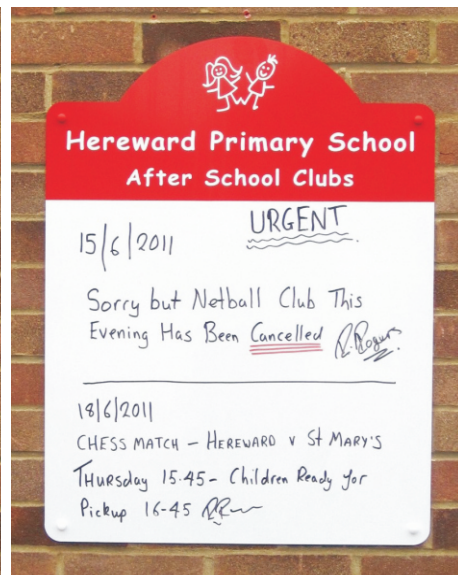 Hereward Primary School
After School Clubs
URGENT
15/6/2011
Sorry but Netball Club This
Evening Has Been Cancelled R.Rogers
18/6/2011
CHESS MATCH - HEREWARD V St MARY'S
THURSday 15.45 - Children Ready for
Pickup 16-45